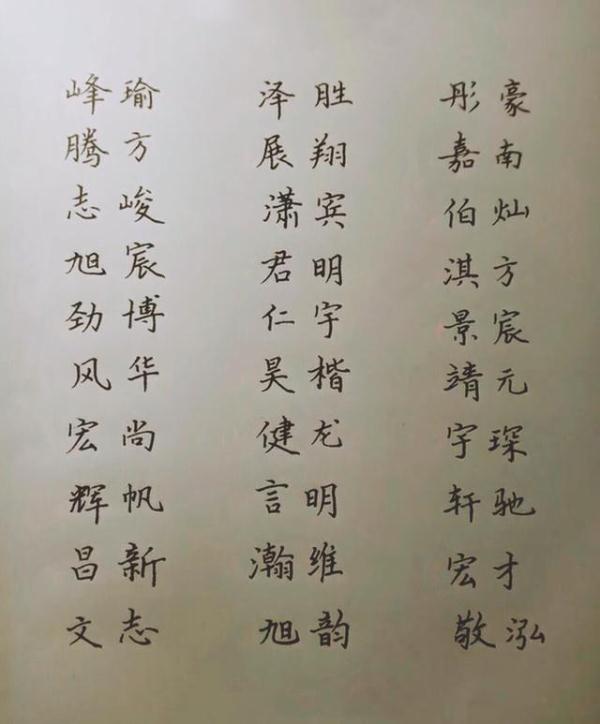 峰瑜 泽胜 彤豪
腾方 展翔 嘉南
志峻 潇宾 伯灿
旭宸 君明 淇方
劲博 仁宇 景宸
风华 昊楷 靖元
宏尚 健龙 宇琛
辉帆 言明 轩驰
昌新 瀚维 宏才
文志 旭韵 敬泓